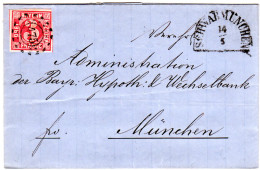 SCHWABMÜNCHEN
14
5
Administration
der Bayr. Hypoth. & Wechselbank
fr.
München